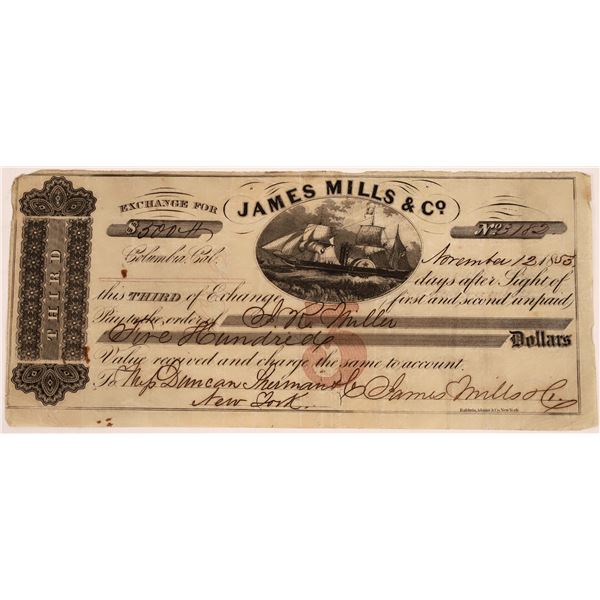 THIRD
JAMES MILLS & Co.
EXCHANGE FOR
$500 No. 5182
Columbia, Cal. November 12, 1855
days after Sight of
this THIRD of Exchange first and second unpaid
Pay to the order of Miller
Five Hundred Dollars
Value received and charge the same to account.
To Mess Duncan Sherman & Co James Mills & Co.
New York.
Baldwin, Adams & Co. New York